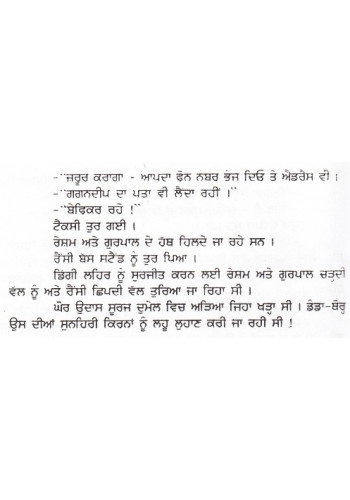 -"ਜ਼ਰੂਰ ਕਰਾਗਾ - ਆਪਦਾ ਫੋਨ ਨਬਰ ਭੇਜ ਦਿਓ ਤੇ ਐਡਰੈਸ ਵੀ ।
-"ਗਗਨਦੀਪ ਦਾ ਪਤਾ ਵੀ ਲੈਂਦਾ ਰਹੀਂ ।"
-"ਬੇਫਿਕਰ ਰਹੋ !"
ਟੈਕਸੀ ਤੁਰ ਗਈ ।
ਰੇਸ਼ਮ ਅਤੇ ਗੁਰਪਾਲ ਦੇ ਹੱਥ ਹਿਲਦੇ ਜਾ ਰਹੇ ਸਨ ।
ਰੈਂਸੀ ਬੱਸ ਸਟੈਂਡ ਨੂੰ ਤੁਰ ਪਿਆ ।
ਡਿੱਗੀ ਲਹਿਰ ਨੂੰ ਸੁਰਜੀਤ ਕਰਨ ਲਈ ਰੇਸ਼ਮ ਅਤੇ ਗੁਰਪਾਲ ਚੜ੍ਹਦੀ
ਵੱਲ ਨੂੰ ਅਤੇ ਰੈਂਸੀ ਛਿਪਦੀ ਵੱਲ ਤੁਰਿਆ ਜਾ ਰਿਹਾ ਸੀ ।
ਘੋਰ ਉਦਾਸ ਸੂਰਜ ਦੁਮੇਲ ਵਿਚ ਅੜਿਆ ਜਿਹਾ ਖੜ੍ਹਾ ਸੀ । ਡੰਡਾ-ਥੋਰ੍ਹ
ਉਸ ਦੀਆਂ ਸੁਨਹਿਰੀ ਕਿਰਨਾਂ ਨੂੰ ਲਹੂ ਲੁਹਾਣ ਕਰੀ ਜਾ ਰਹੀ ਸੀ !